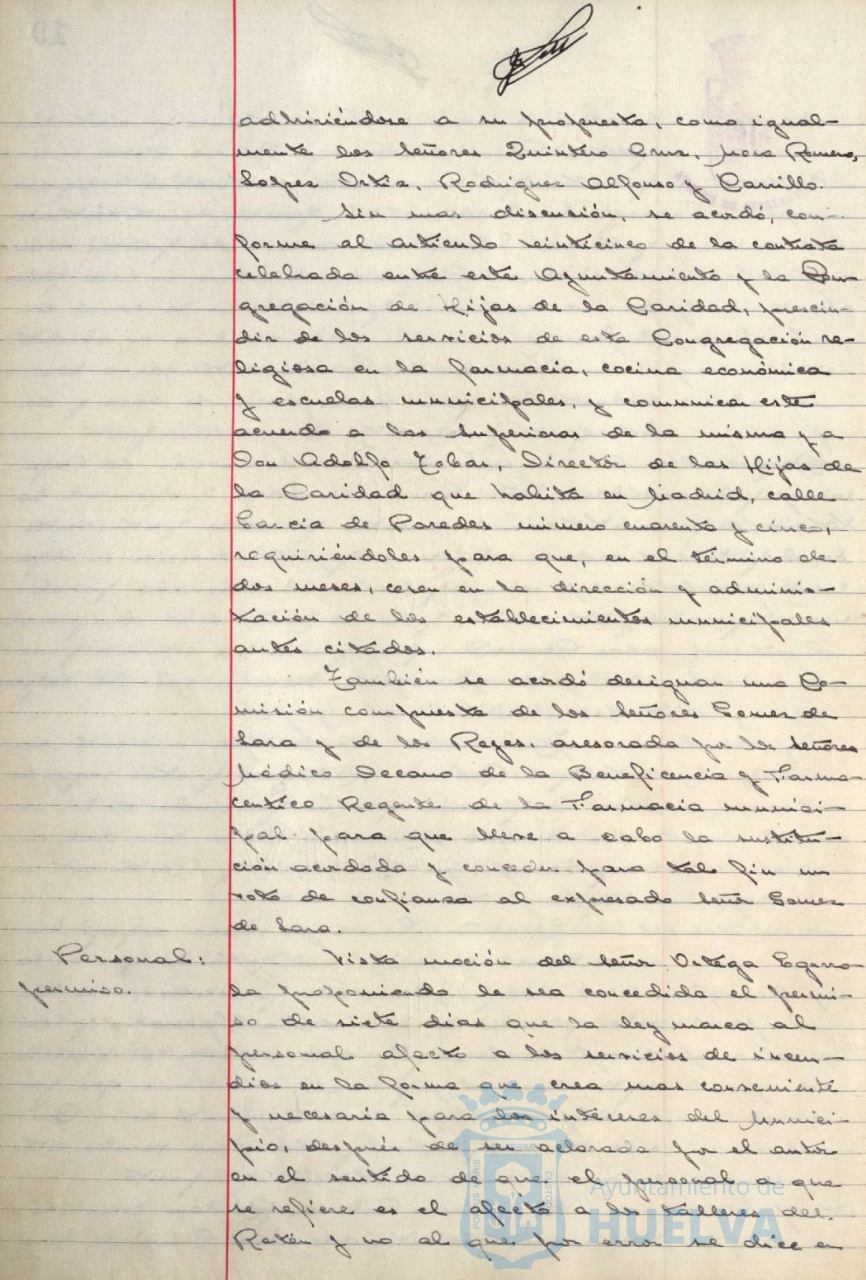 adhiriéndose a su propuesta, como igual-
mente los Señores Quintero Cruz, Mora Romero,
Lopez Ortiz, Rodriguez Alfonso y Carrillo.
Sin mas discusión, se acordó, con-
forme al artículo veinticinco de la contrata
celebrada entre este Ayuntamiento y la Con-
gregación de Hijas de la Caridad, prescin-
dir de los servicios de esta Congregación re-
ligiosa en la farmacia, cocina económica
y escuelas municipales, y comunicar este
acuerdo a las Superioras de la misma y a
Don Adolfo Tobar, Director de las Hijas de
la Caridad que habita en Madrid, calle
Garcia de Paredes número cuarenta y cinco,
requiriéndoles para que, en el término de
dos meses, cesen en la dirección y adminis-
tración de los establecimientos municipales
antes citados.
También se acordó designar una Co-
misión compuesta de los Señores Gomez de
Lara y de los Reyes, asesorada por los Señores
Médico Decano de la Beneficencia y Farma-
ceutico Regente de la Farmacia munici-
pal para que lleve a cabo la sustitu-
ción acordada y conceder para tal fin un
voto de confianza al expresado Señor Gomez
de Lara.
Personal:
permiso.
Vista moción del Señor Ortega
la proponiendo le sea concedida el permi-
so de siete dias que la ley marca al
personal afecto a los servicios de incen-
dios en la forma que crea mas conveniente
y necesaria para los intereses del Munici-
pio, después de ser aclarada por el autor
en el sentido de que el personal a que
se refiere es el afecto a los talleres del
Retén y no al que por error se dice en
Ayuntamiento de
HUELVA